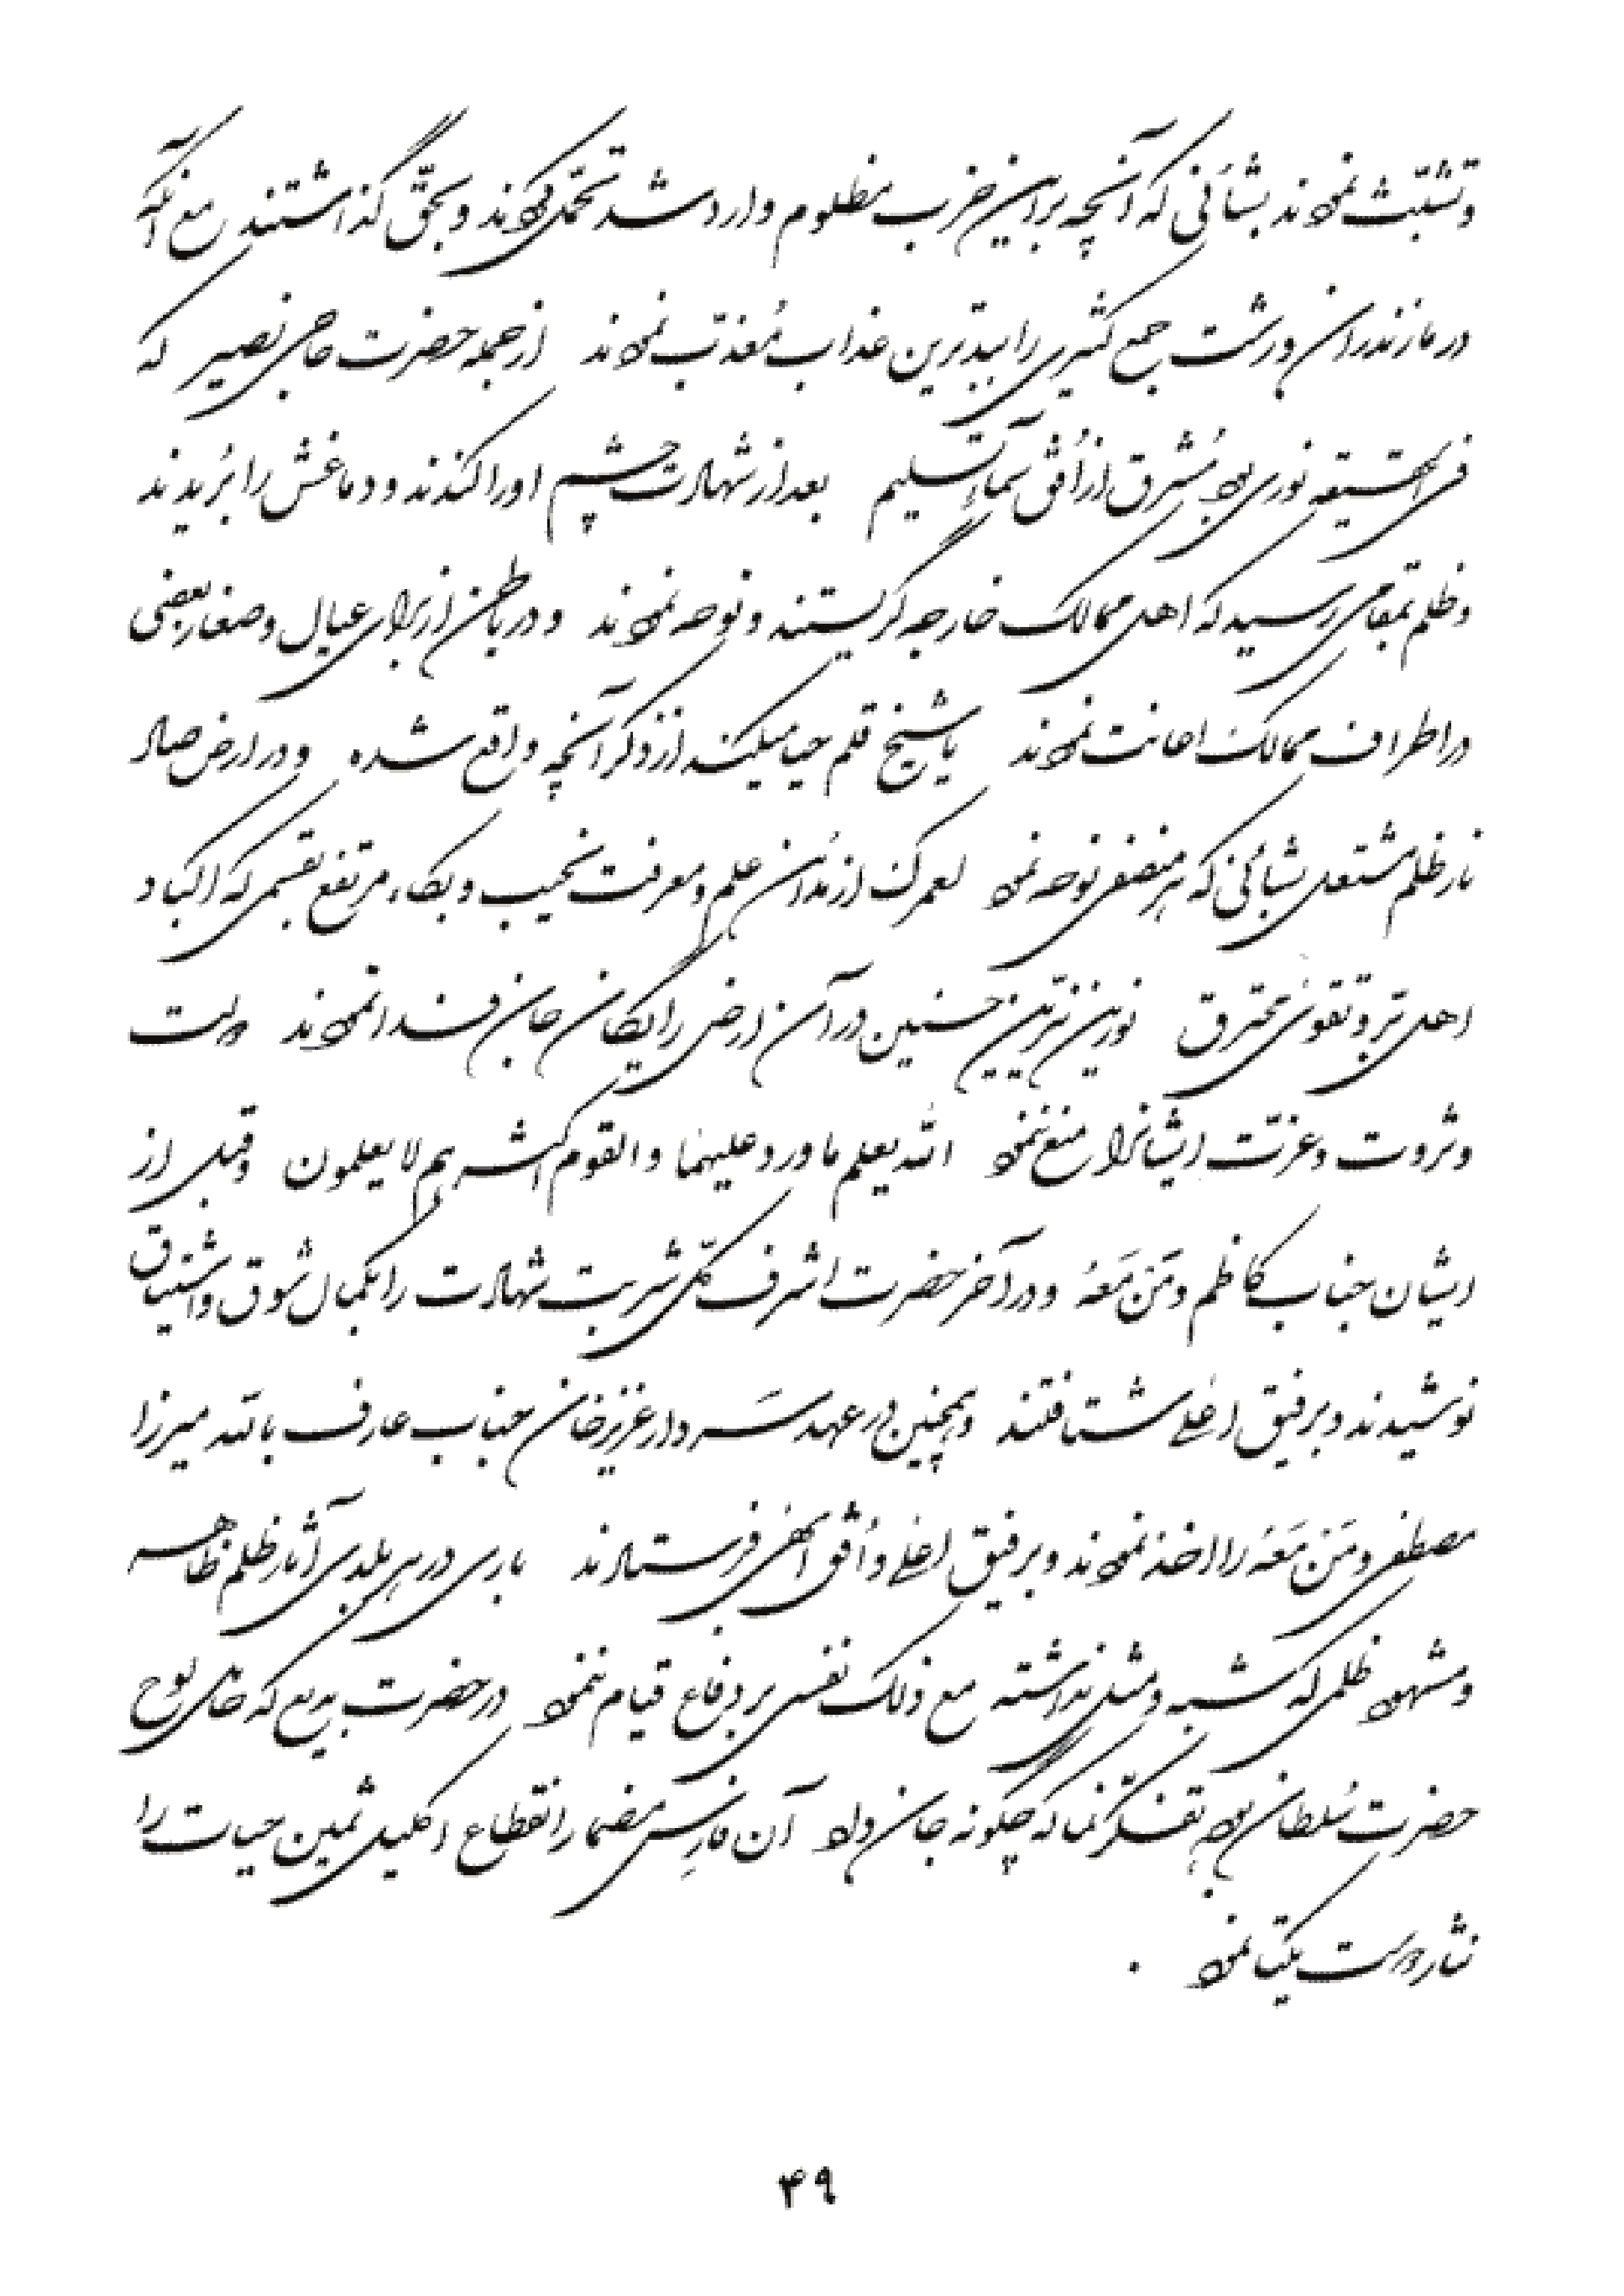 و تشبّث نمودند بشأنی که آنچه بر این حزب مظلوم وارد شد تحمّل نمودند و بحقّ گذاشتند مع آنکه
در مازندران و رشت جمع کثیری را ببدترین عذاب مُعذّب نمودند از جمله حضرت حاجی نصیر که
فی الحقیقه نوری بود مُشرق از اُفق سمآء تسلیم بعد از شهادت چشم او را کندند و دماغش را بُریدند
و ظلم بمقامی رسید که اهل ممالک خارجه گریستند و نوحه نمودند و در باطن از برای عیال و صغار بعضی
در اطراف ممالک اعانت نمودند یا شیخ قلم حیا میکند از ذکر آنچه واقع شده و در ارض صاد
نار ظلم مشتعل بشأنی که هر منصفی نوحه نمود لعمرک از مُدُن علم و معرفت نحیب و بکاء مرتفع بقسمی که اکباد
اهل برّ و تقوی محترق نورین نیّرین حسنین در آن ارض رایگان جان فدا نمودند دولت
و ثروت و عزّت ایشانرا منع ننمود الله یعلم ما ورد علیهما و القوم اکثرهم لا یعلمون و قبل از
ایشان جناب کاظم و مَن مَعَهُ و در آخر حضرت اشرف کلّ شربت شهادت را بکمال شوق و اشتیاق
نوشیدند و برفیق اعلی شتافتند و همچنین در عهد سَردار عزیزخان جناب عارف بالله میرزا
مصطفی و مَن مَعَهُ را اخذ نمودند و برفیق اعلی و اُفق ابهی فرستادند باری در هر بلدی آثار ظلم ظاهر
و مشهود ظلمی که شبه و مثل نداشته مع ذلک نفسی بر دفاع قیام ننمود در حضرت بدیع که حامل لوح
حضرت سُلطان بوده تفکّر نما که چگونه جان داد آن فارِس مضمار انقطاع اکلیل ثمین حیات را
نثار دوست یکتا نمود .
۴۹